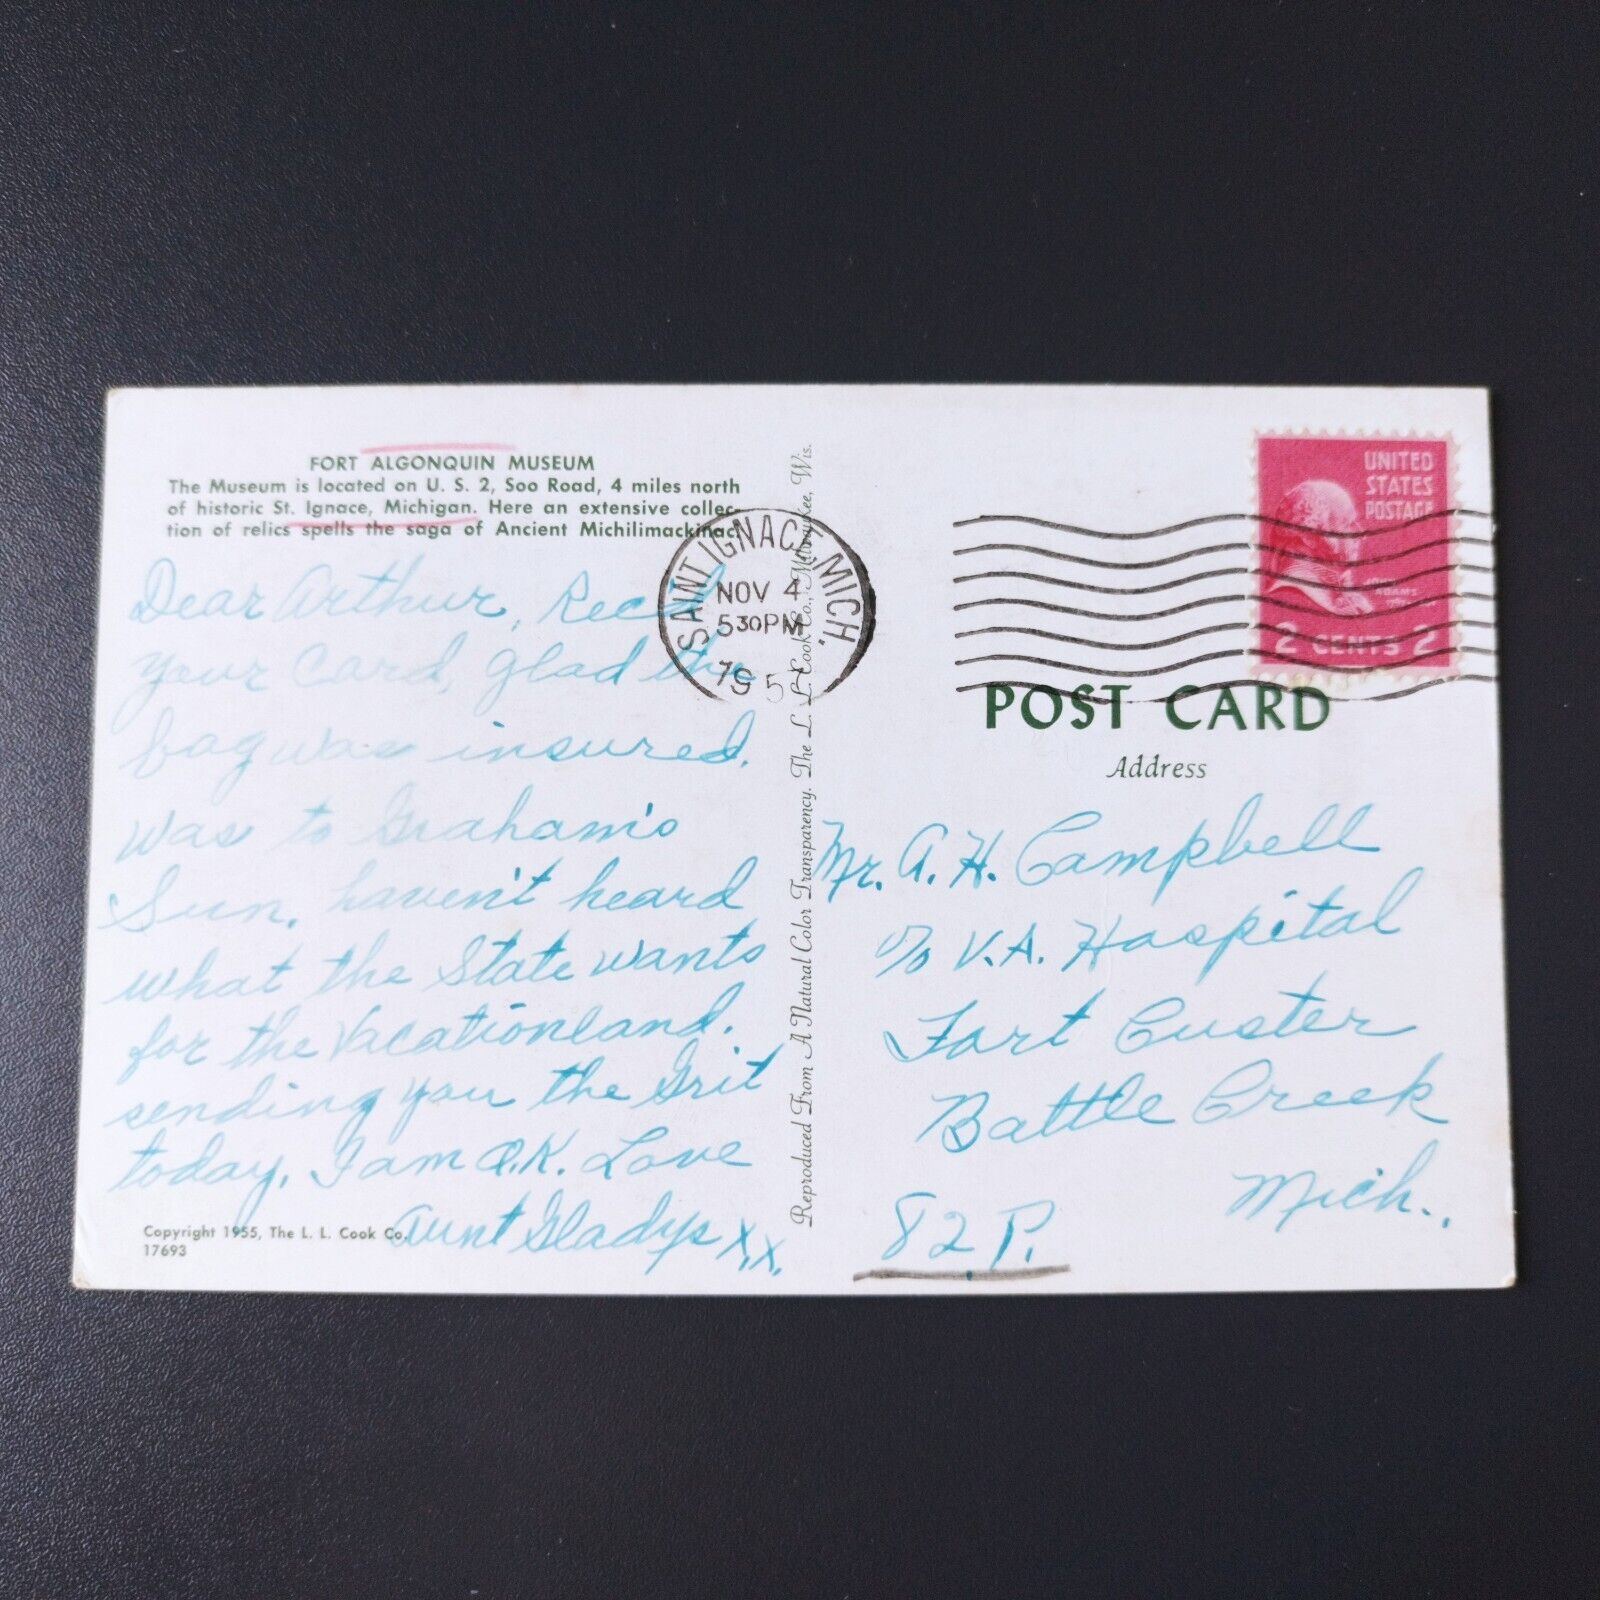 FORT ALGONQUIN MUSEUM
The Museum is located on U. S. 2, Soo Road, 4 miles north
of historic St. Ignace, Michigan. Here an extensive collec-
tion of relics spells the saga of Ancient Michilimackinac.
Dear Arthur, Rec'd
your Card, glad the
bag was insured.
Was to Graham's
Sun. haven't heard
what the State wants
for the Vacationland.
sending you the Grit
today. I am O.K. Love
Aunt Gladys X.X.
Copyright 1955, The L. L. Cook Co.
17693
Reproduced From A Natural Color Transparency. The L. L. Cook Co., Milwaukee, Wis.
SAINT IGNACE, MICH.
NOV 4
5 30 PM
195
UNITED
STATES
POSTAGE
JOHN
ADAMS
2 CENTS 2
POST CARD
Address
Mr. A. H. Campbell
c/o V.A. Hospital
Fort Custer
Battle Creek
Mich.
82 P.